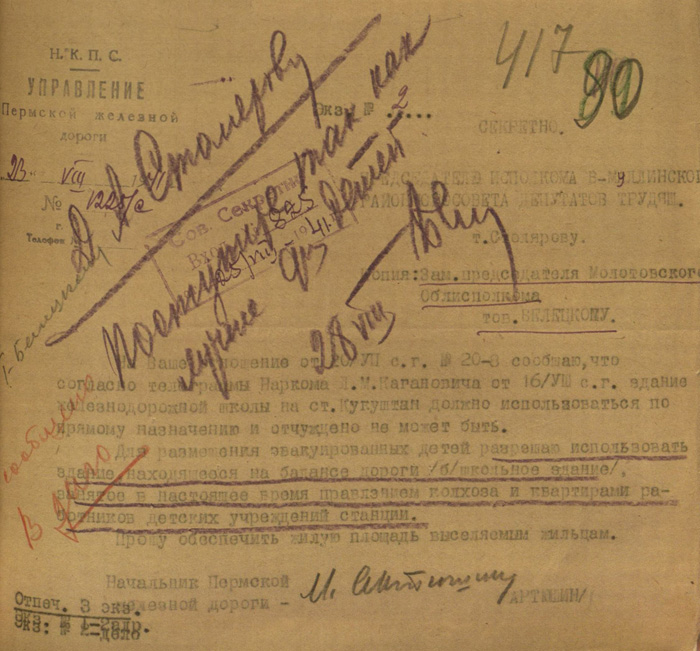 417
90
Н.К.П.С.
УПРАВЛЕНИЕ
Пермской железной
дороги
23 VIII
№ 1225/с
г.
Телефон №
Экз. № 2
СЕКРЕТНО.
ПРЕДСЕДАТЕЛЮ ИСПОЛКОМА В-МУЛЛИНСКОГО
РАЙОННОГО СОВЕТА ДЕПУТАТОВ ТРУДЯЩ.
т.Столярову.
Копия: Зам.председателя Молотовского
Облисполкома
тов. БЕЛЕЦКОМУ.
Сов. Секретно
Вход. 825
25/VIII 1941
Поступить так как
лучше для детей
28 VIII
т. Белецкому
сообщено
В дело
На Ваше отношение от 20/УП с.г. № 20-8 сообщаю, что
согласно телеграммы Наркома Л.М.Кагановича от 16/УШ с.г. здание
железнодорожной школы на ст.Кукуштан должно использоваться по
прямому назначению и отчуждено не может быть.
Для размещения эвакуированных детей разрешаю использовать
здание находящееся на балансе дороги /б/школьное здание/,
занятое в настоящее время правлением колхоза и квартирами ра-
ботников детских учреждений станции.
Прошу обеспечить жилую площадь выселяемым жильцам.
Начальник Пермской
железной дороги -
АРТЮШИН/
Отпеч. 3 экз.
Экз: № 1-2 адр.
Экз: № 2-дело